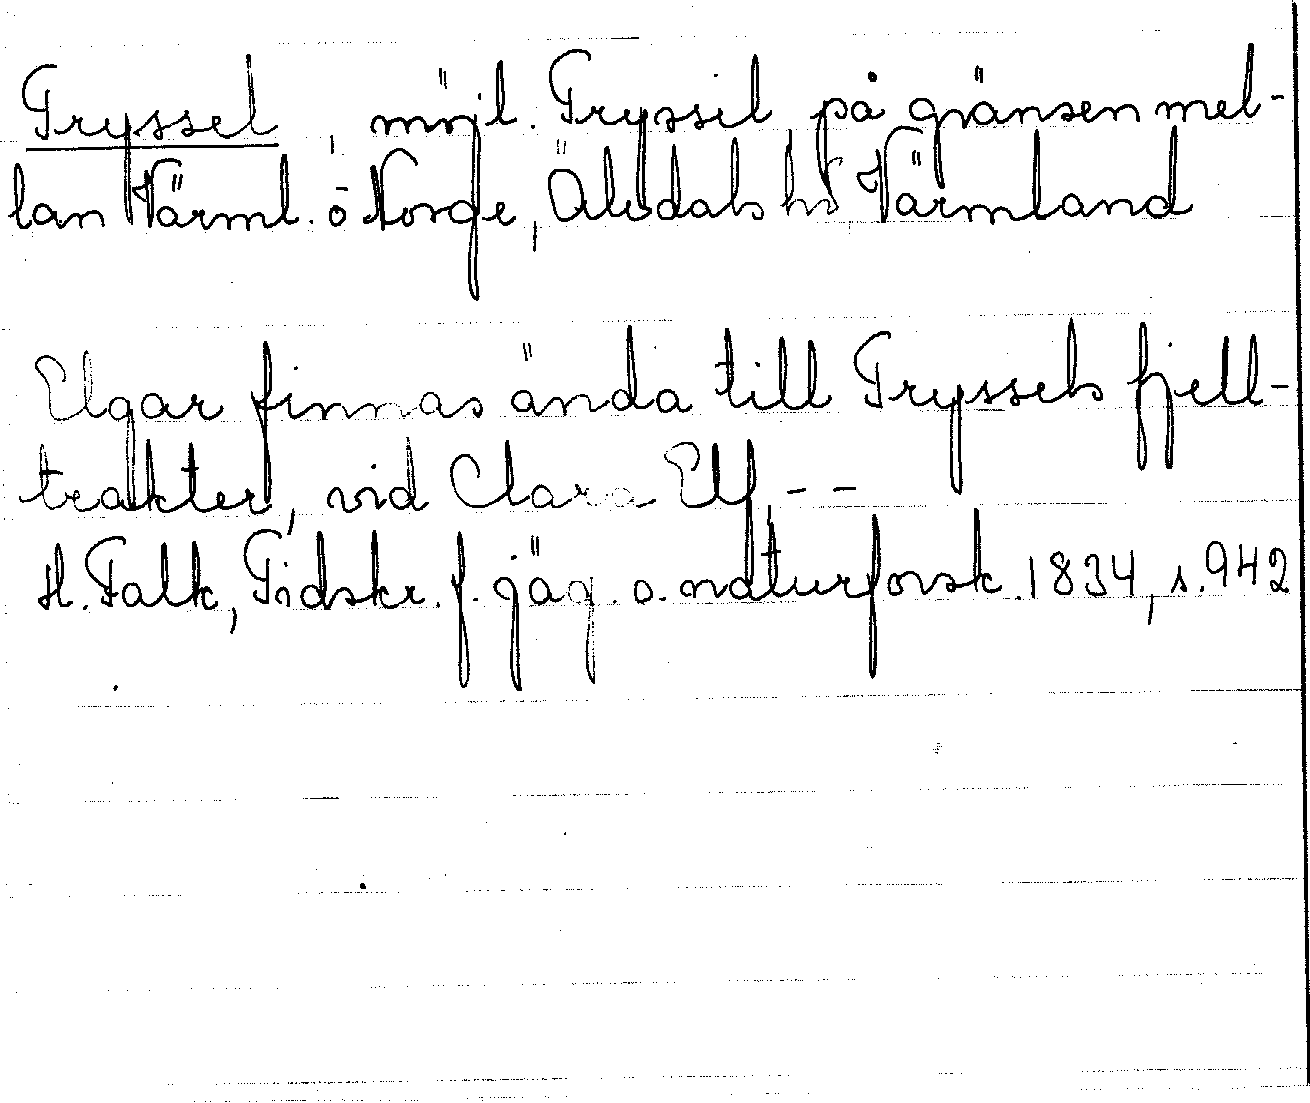 Tryssel, möjl. Tryssil, på gränsen mel-
lan Värml. o Norge, Älvdals hd Värmland
Elgar finnas ända till Tryssels fjell-
trakter, vid Clara Elf - -
H. Falk, Tidskr. f. jäg. o. naturforsk. 1834, s. 942